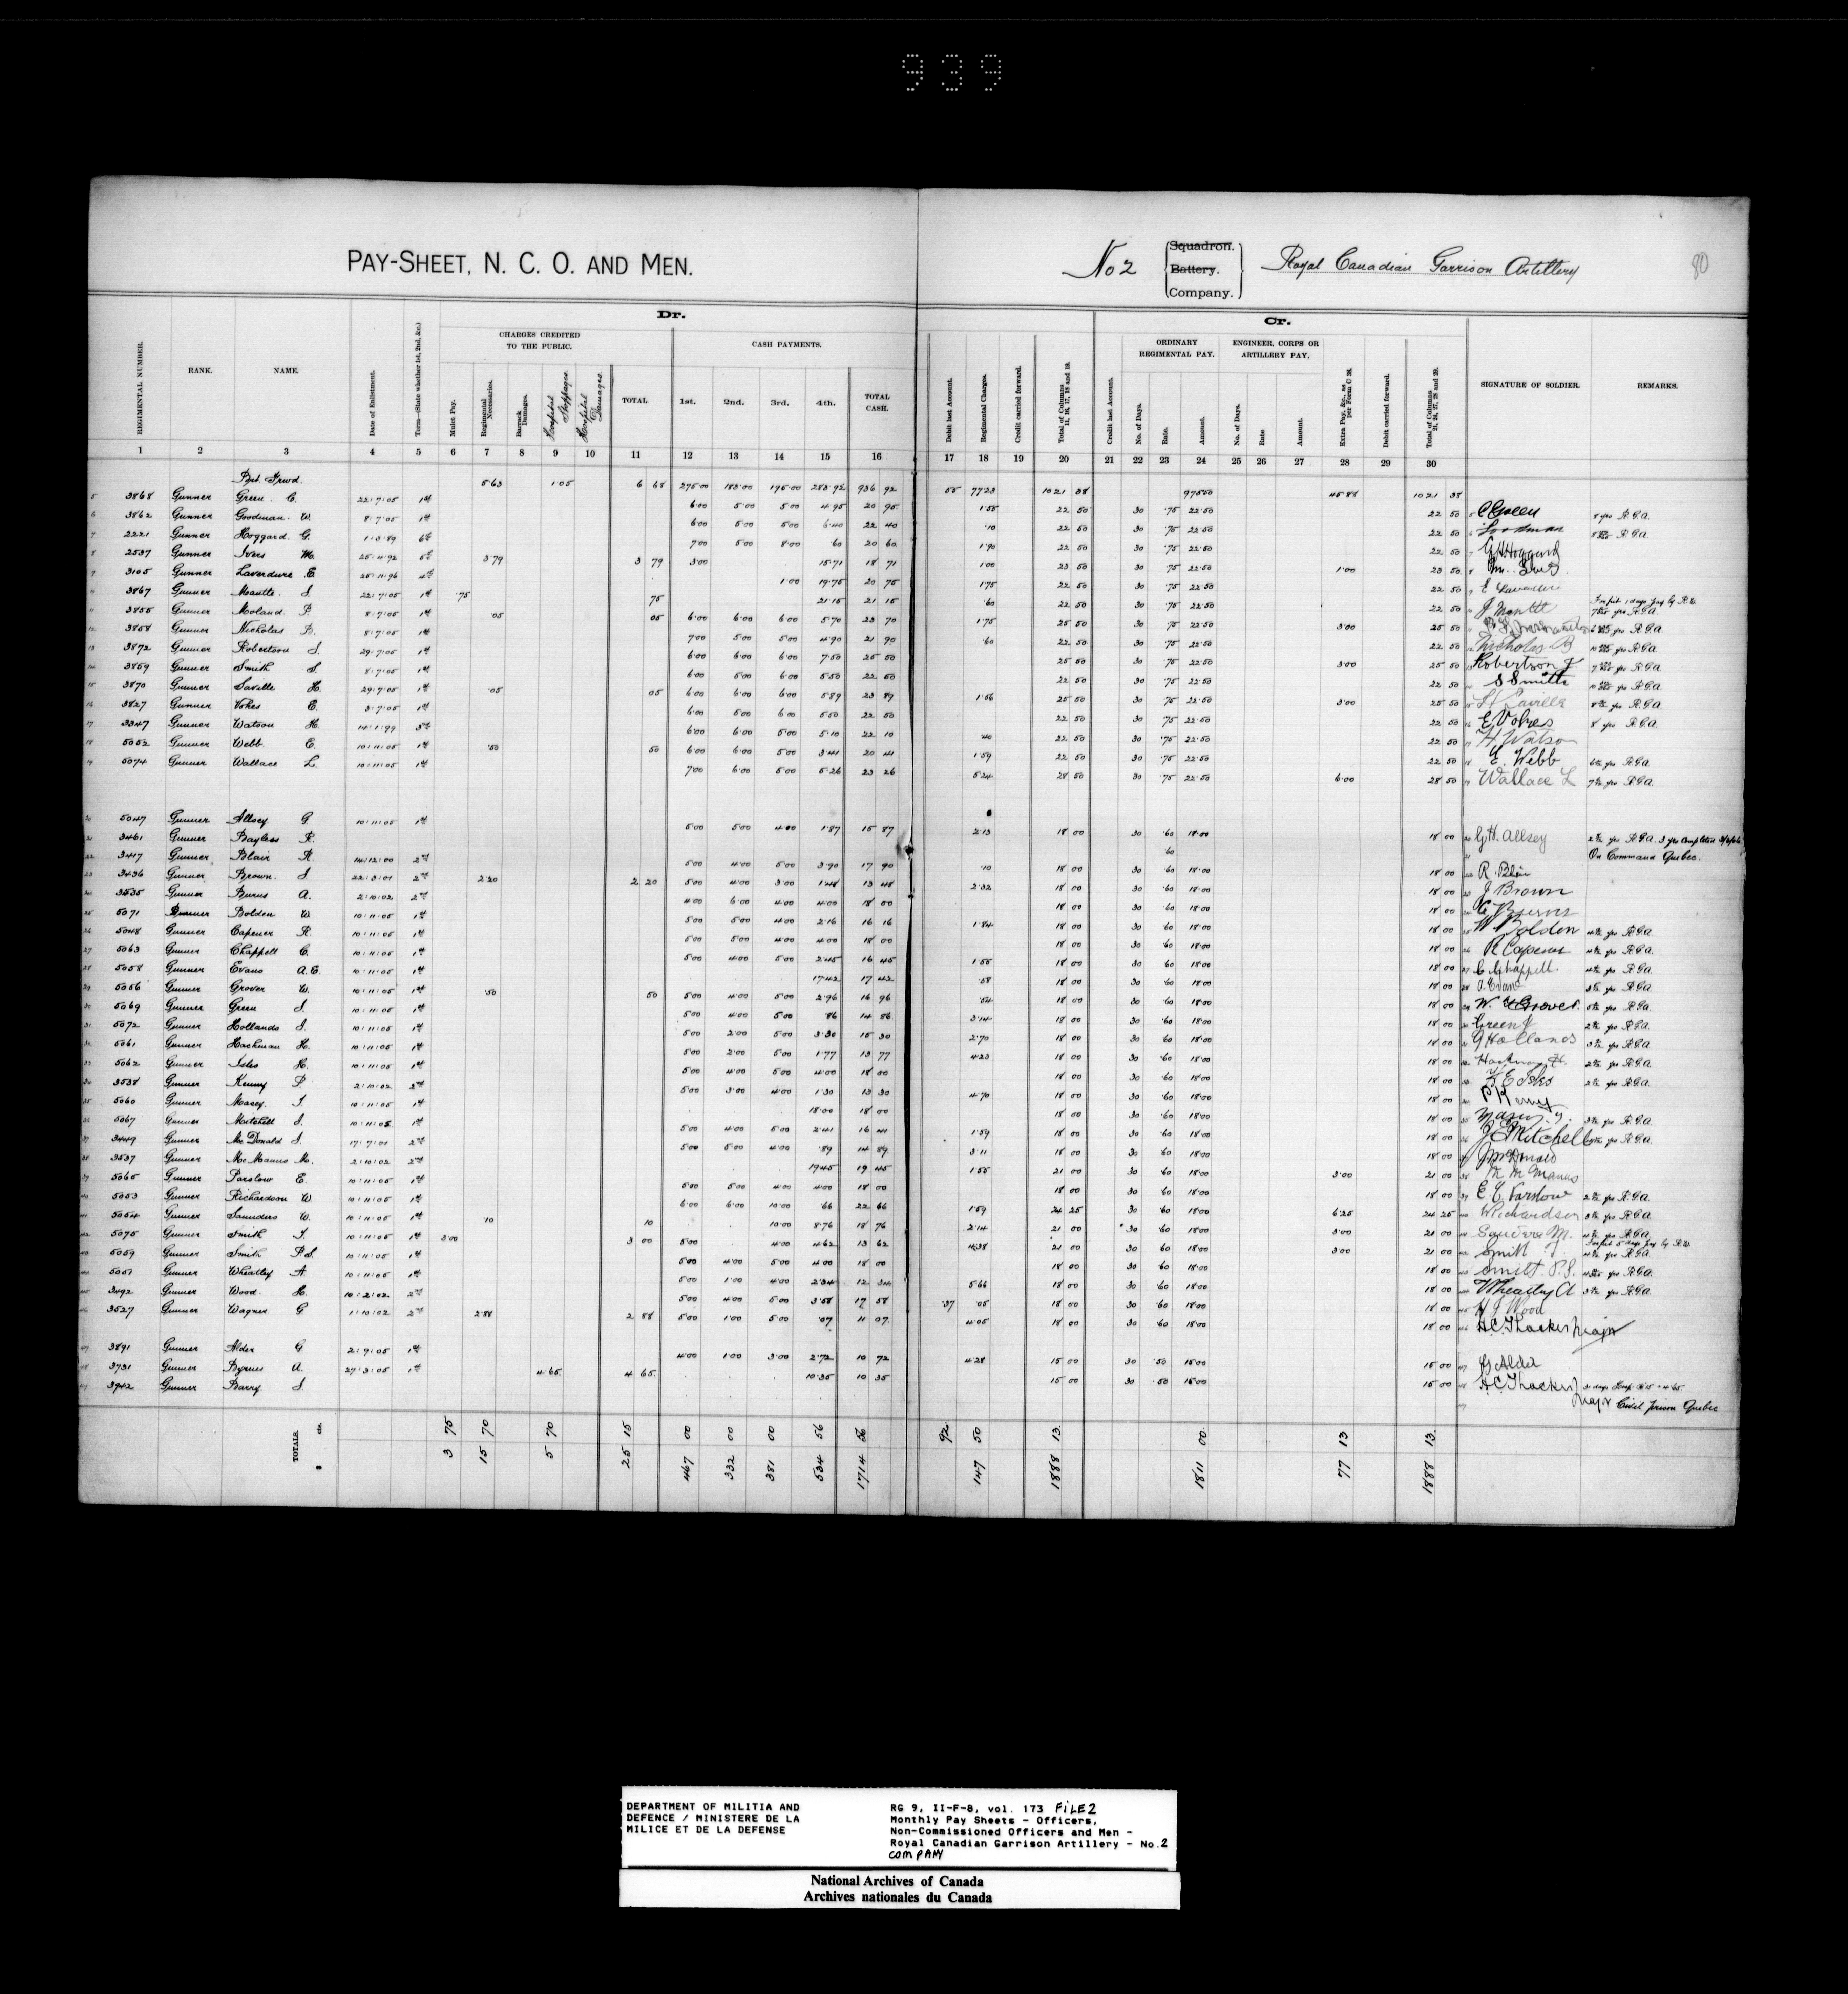 939
PAY-SHEET, N. C. O. AND MEN.
No 2 Squadron. Battery. Company. Royal Canadian Garrison Artillery 80
Dr. Cr.
CHARGES CREDITED TO THE PUBLIC. CASH PAYMENTS. ORDINARY REGIMENTAL PAY. ENGINEER, CORPS OR ARTILLERY PAY.
REGIMENTAL NUMBER. RANK. NAME. Date of Enlistment. Term—(State whether 1st, 2nd, &c.) Mulct Pay. Regimental Necessaries. Barrack Damages. Hospital Stoppages Hospital Damages. TOTAL 1st. 2nd. 3rd. 4th. TOTAL CASH. Debit last Account. Regimental Charges. Credit carried forward. Total of Columns 11, 16, 17, 18 and 19. Credit last Account. No. of Days. Rate. Amount. No. of Days. Rate Amount. Extra Pay, &c., as per Form C 38. Debit carried forward. Total of Columns 21, 24, 27, 28 and 29. SIGNATURE OF SOLDIER. REMARKS.
1 2 3 4 5 6 7 8 9 10 11 12 13 14 15 16 17 18 19 20 21 22 23 24 25 26 27 28 29 30
5.63 1.05 6 68 275.00 183.00 195.00 283.92 936 92 55 77.23 1021 38 975.50 45.88 1021 38
5 3868 Gunner Green. C. 22:7:05 1st 6.00 5.00 5.00 4.95 20 95 1.55 22 50 30 .75 22.50 22 50 C Green 8 yrs R.G.A.
6 3862 Gunner Goodman. W. 8:7:05 1st 6.00 5.00 5.00 6.40 22 40 .10 22 50 30 .75 22.50 22 50 R.G.A.
7 2221 Gunner Hoggard. G. 1:3:89 6th 7.00 5.00 8.00 .60 20 60 1.90 22 50 30 .75 22.50 22 50 G H Hoggard
8 2537 Gunner Ivers M. 25:4:92 5th 3.79 3 79 3.00 15.71 18 71 1.00 23 50 30 .75 22.50 1.00 23 50
9 3105 Gunner Laverdure E. 25:11:96 4th 1.00 19.75 20 75 1.75 22 50 30 .75 22.50 22 50 E Laverdure
3867 Gunner Mantle. J. 22:7:05 1st .75 75 21.15 21 15 .60 22 50 30 .75 22.50 22 50 J Mantle Forfeit 1 days pay by R.W. yrs R.G.A.
11 3855 Gunner Moland. P. 8:7:05 1st .05 05 6.00 6.00 6.00 5.70 23 70 1.75 25 50 30 .75 22.50 3.00 25 50 yrs R.G.A.
12 3858 Gunner Nicholas B. 8:7:05 1st 7.00 5.00 5.00 4.90 21 90 .60 22 50 30 .75 22.50 22 50 Nicholas B yrs R.G.A.
13 3872 Gunner Robertson J. 29:7:05 1st 6.00 6.00 6.00 7.50 25 50 25 50 30 .75 22.50 3.00 25 50 Robertson J yrs R.G.A.
14 3859 Gunner Smith S 8:7:05 1st 6.00 5.00 6.00 5.50 22 50 22 50 30 .75 22.50 22 50 S Smith yrs R.G.A.
15 3870 Gunner Saville H. 29:7:05 1st .05 05 6.00 6.00 6.00 5.89 23 89 1.56 25 50 30 .75 22.50 3.00 25 50 H Saville yrs R.G.A.
16 3827 Gunner Vokes E. 3:7:05 1st 6.00 5.00 6.00 5.50 22 50 22 50 30 .75 22.50 22 50 E Vokes 8 yrs R.G.A.
17 3347 Gunner Watson H. 14:1:99 3rd 6.00 6.00 5.00 5.10 22 10 .40 22 50 30 .75 22.50 22 50 H. Watson
18 5052 Gunner Webb. E. 10:11:05 1st .50 50 6.00 6.00 5.00 3.41 20 41 1.59 22 50 30 .75 22.50 22 50 E. Webb yrs R.G.A.
19 5074 Gunner Wallace L. 10:11:05 1st 7.00 6.00 5.00 5.26 23 26 5.24 28 50 30 .75 22.50 6.00 28 50 Wallace L yrs R.G.A.
20 5047 Gunner Allsey. G 10:11:05 1st 5.00 5.00 4.00 1.87 15 87 2.13 18 00 30 .60 18.00 18 00 G.H. Allsey yrs R.G.A. 3 yrs completed
21 3461 Gunner Bayless R. .60 On Command Quebec.
22 3417 Gunner Blair R. 14:12:00 2nd 5.00 4.00 5.00 3.90 17 90 .10 18 00 30 .60 18.00 18 00 R. Blair
23 3436 Gunner Brown. J 22:3:01 2nd 2.20 2 20 5.00 4.00 3.00 1.48 13 48 2.32 18 00 30 .60 18.00 18 00 J Brown
24 3535 Gunner Burns A. 2:10:02 2nd 4.00 6.00 4.00 4.00 18 00 18 00 30 .60 18.00 18 00 Burns
25 5071 Gunner Bolden W 10:11:05 1st 5.00 5.00 4.00 2.16 16 16 1.84 18 00 30 .60 18.00 18 00 W Bolden yrs R.G.A.
26 5048 Gunner Capener R. 10:11:05 1st 5.00 5.00 4.00 4.00 18 00 18 00 30 .60 18.00 18 00 R Capener yrs R.G.A.
27 5063 Gunner Chappell C. 10:11:05 1st 5.00 4.00 5.00 2.45 16 45 1.55 18 00 30 .60 18.00 18 00 C Chappell. yrs R.G.A.
28 5058 Gunner Evans A.E. 10:11:05 1st 17.42 17 42 .58 18 00 30 .60 18.00 18 00 A. Evans yrs R.G.A.
29 5056 Gunner Grover W. 10:11:05 1st .50 50 5.00 4.00 5.00 2.96 16 96 .54 18 00 30 .60 18.00 18 00 W. Grover. yrs R.G.A.
30 5069 Gunner Green J. 10:11:05 1st 5.00 4.00 5.00 .86 14 86 3.14 18 00 30 .60 18.00 18 00 Green J yrs R.G.A.
31 5072 Gunner Hollands J. 10:11:05 1st 5.00 2.00 5.00 3.30 15 30 2.70 18 00 30 .60 18.00 18 00 Hollands yrs R.G.A.
32 5061 Gunner Hachman H. 10:11:05 1st 5.00 2.00 5.00 1.77 13 77 4.23 18 00 30 .60 18.00 18 00 yrs R.G.A.
33 5062 Gunner Isles H. 10:11:05 1st 5.00 4.00 5.00 4.00 18 00 18 00 30 .60 18.00 18 00 yrs R.G.A.
34 3538 Gunner Kenny P. 2:10:02 2nd 5.00 3.00 4.00 1.30 13 30 4.70 18 00 30 .60 18.00 18 00 P Kenny
35 5060 Gunner Masey. J. 10:11:05 1st 18.00 18 00 18 00 30 .60 18.00 18 00 yrs R.G.A.
36 5067 Gunner Mitchell J. 10:11:05 1st 5.00 4.00 5.00 2.41 16 41 1.59 18 00 30 .60 18.00 18 00 J Mitchell yrs R.G.A.
37 3449 Gunner Mc Donald J. 17:7:01 2nd 5.00 5.00 4.00 .89 14 89 3.11 18 00 30 .60 18.00 18 00 J McDonald
38 3537 Gunner Mc Manus M. 2:10:02 2nd 19.45 19 45 1.55 21 00 30 .60 18.00 3.00 21 00 M Manus
39 5065 Gunner Parslow E. 10:11:05 1st 5.00 5.00 4.00 4.00 18 00 18 00 30 .60 18.00 18 00 E C Parslow yrs R.G.A.
40 5053 Gunner Richardson W. 10:11:05 1st 6.00 6.00 10.00 .66 22 66 1.59 24 25 30 .60 18.00 6.25 24 25 W Richardson yrs R.G.A.
41 5054 Gunner Saunders W. 10:11:05 1st .10 10 10.00 8.76 18 76 2.14 21 00 30 .60 18.00 3.00 21 00 yrs R.G.A.
42 5075 Gunner Smith J. 10:11:05 1st 3.00 3 00 5.00 4.00 4.62 13 62 4.38 21 00 30 .60 18.00 3.00 21 00 Smith J. Forfeit 5 days pay by R.W. yrs R.G.A.
43 5059 Gunner Smith P.S. 10:11:05 1st 5.00 4.00 5.00 4.00 18 00 18 00 30 .60 18.00 18 00 Smith. P.S. yrs R.G.A.
44 5051 Gunner Wheatley A. 10:11:05 1st 5.00 1.00 4.00 2.34 12 34 5.66 18 00 30 .60 18.00 18 00 Wheatley A yrs R.G.A.
45 3492 Gunner Wood. H. 10:2:02 2nd 5.00 4.00 5.00 3.58 17 58 .37 .05 18 00 30 .60 18.00 18 00 H J Wood
46 3527 Gunner Wagner G. 1:10:02 2nd 2.88 2 88 5.00 1.00 5.00 .07 11 07 4.05 18 00 30 .60 18.00 18 00 H.C. Thacker Major
47 3891 Gunner Alder G. 2:9:05 1st 4.00 1.00 3.00 2.72 10 72 4.28 15 00 30 .50 15.00 15 00 G Alder
48 3731 Gunner Byrnes A. 27:3:05 1st 4.65 4 65 10.35 10 35 15 00 30 .50 15.00 15 00 H.C. Thacker Major 31 days Hosp. @ 15 = 4.65
49 3942 Gunner Barry. J. Civil Prison Quebec
TOTALS. $ cts. 3 75 15 70 5 70 25 15 467 00 332 00 381 00 534 56 1714 56 92 147 50 1888 13 1811 00 77 13 1888 13
DEPARTMENT OF MILITIA AND
DEFENCE / MINISTERE DE LA
MILICE ET DE LA DEFENSE
RG 9, II-F-8, vol. 173 FILE 2
Monthly Pay Sheets - Officers,
Non-Commissioned Officers and Men -
Royal Canadian Garrison Artillery - No.2
COMPANY
National Archives of Canada
Archives nationales du Canada